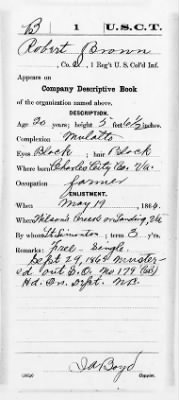 B 1 U.S.C.T.
Robert Brown
, Co. , 1 Reg't U. S. Col'd Inf.
Appears on
Company Descriptive Book
of the organization named above.
DESCRIPTION.
Age 20 years; height 5 feet 6½ inches.
Complexion Mulatto
Eyes Black ; hair Black
Where born Charles City Co. Va.
Occupation Farmer
ENLISTMENT.
When May 19 , 1864.
Where Wilson's Landing, Va
By whom Lt Simonton ; term 3 y'rs.
Remarks: Free - Single.
Sept 29, 1865 muster-
ed out S.O. No 179 
Hd. Qrs. Dept. N.C.
J A Boyd
Copyist.